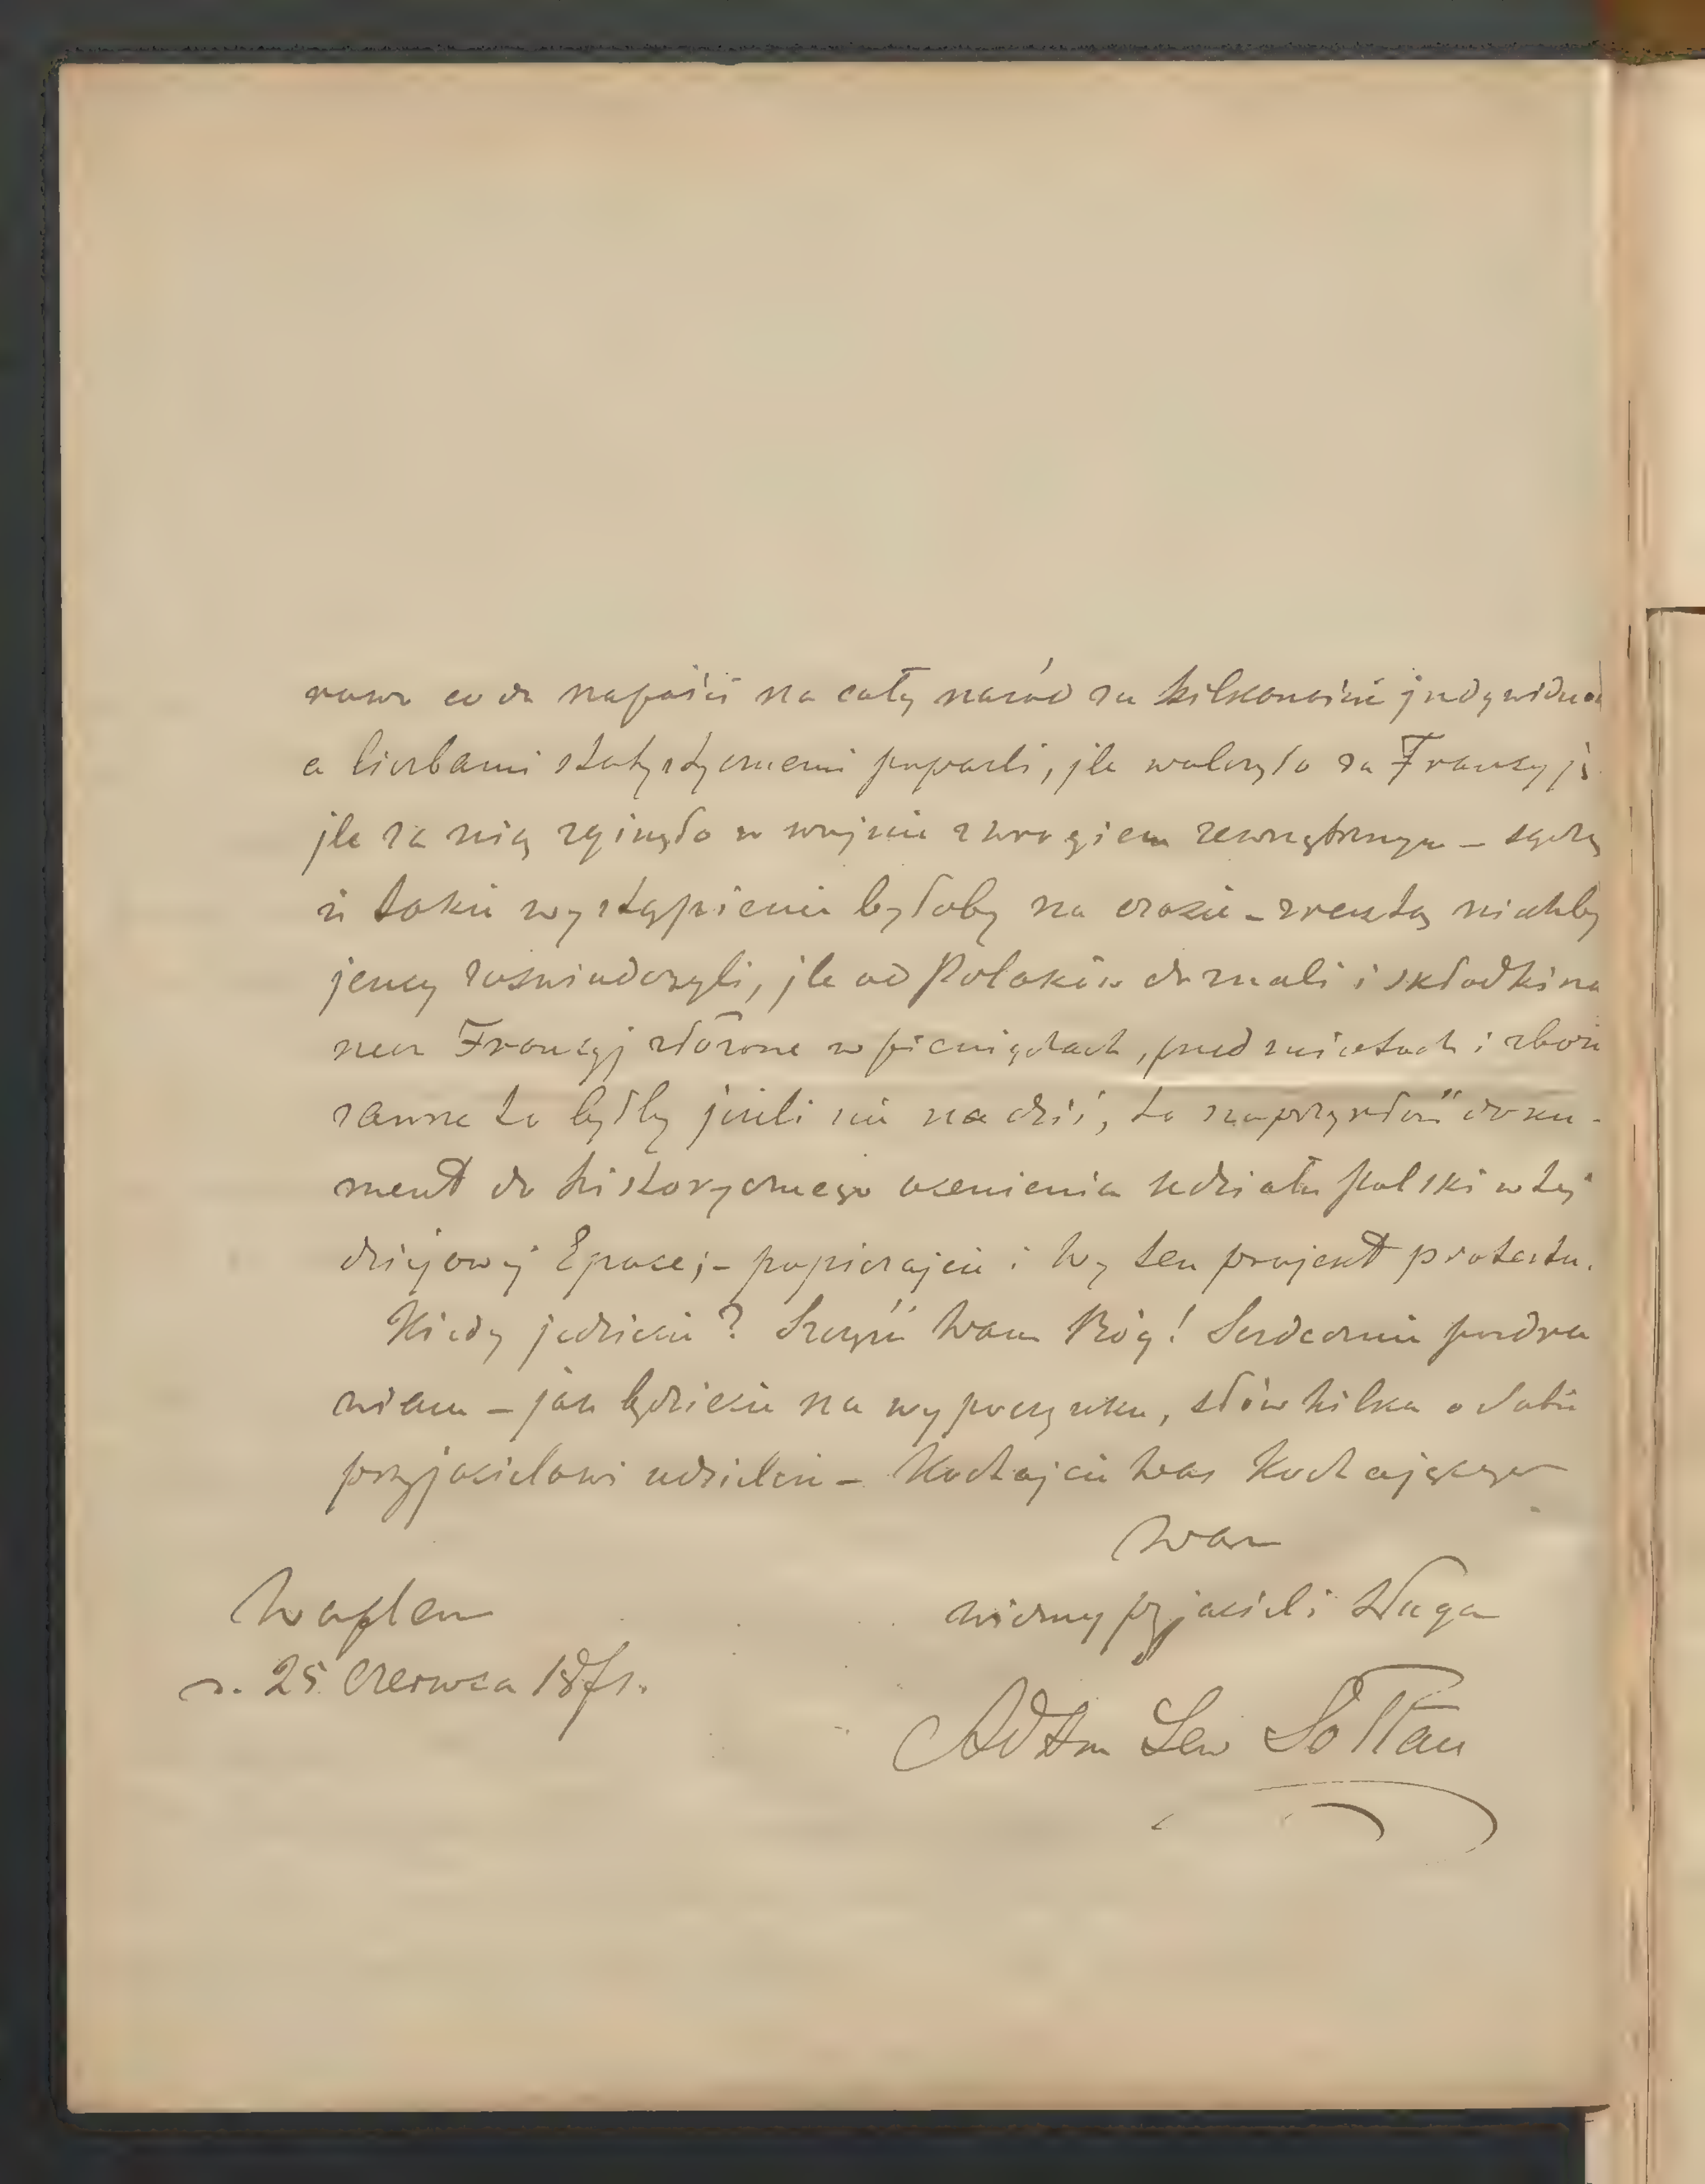 rowo co do napaści na cały naród za kilkonaście jndywiduó
a liczbami statystycznemi poparli, jle walczyło za Francyją
jle za nią zginęło w wojnie z wrogiem zewnętrznym – sądzę
iż takie wystąpienie byłoby na czasie – zresztą niechby
jeńcy zaświadczyli, jle od Polaków doznali i składki na
rzecz Francyj złożone w pieniądzach, przedmiotach i zbożu
zawsze to byłby jeżeli nie na dziś, to na przyszłość doku-
ment do historycznego ocenienia udziału Polski w tej
dziejowej Epoce; – popierajcie i Wy ten projekt protestu.
Kiedy jedziecie? Szczęść Wam Bóg! Serdecznie pozdra
wiam – jak będziecie na wypoczynku, słów kilka o sobie
przyjacielowi udzielcie – Kochajcie Was Kochającego
Wam
wierny przyjaciel i sługa
Adam Lew Sołtan
Waplew
d. 25 Czerwca 1871.